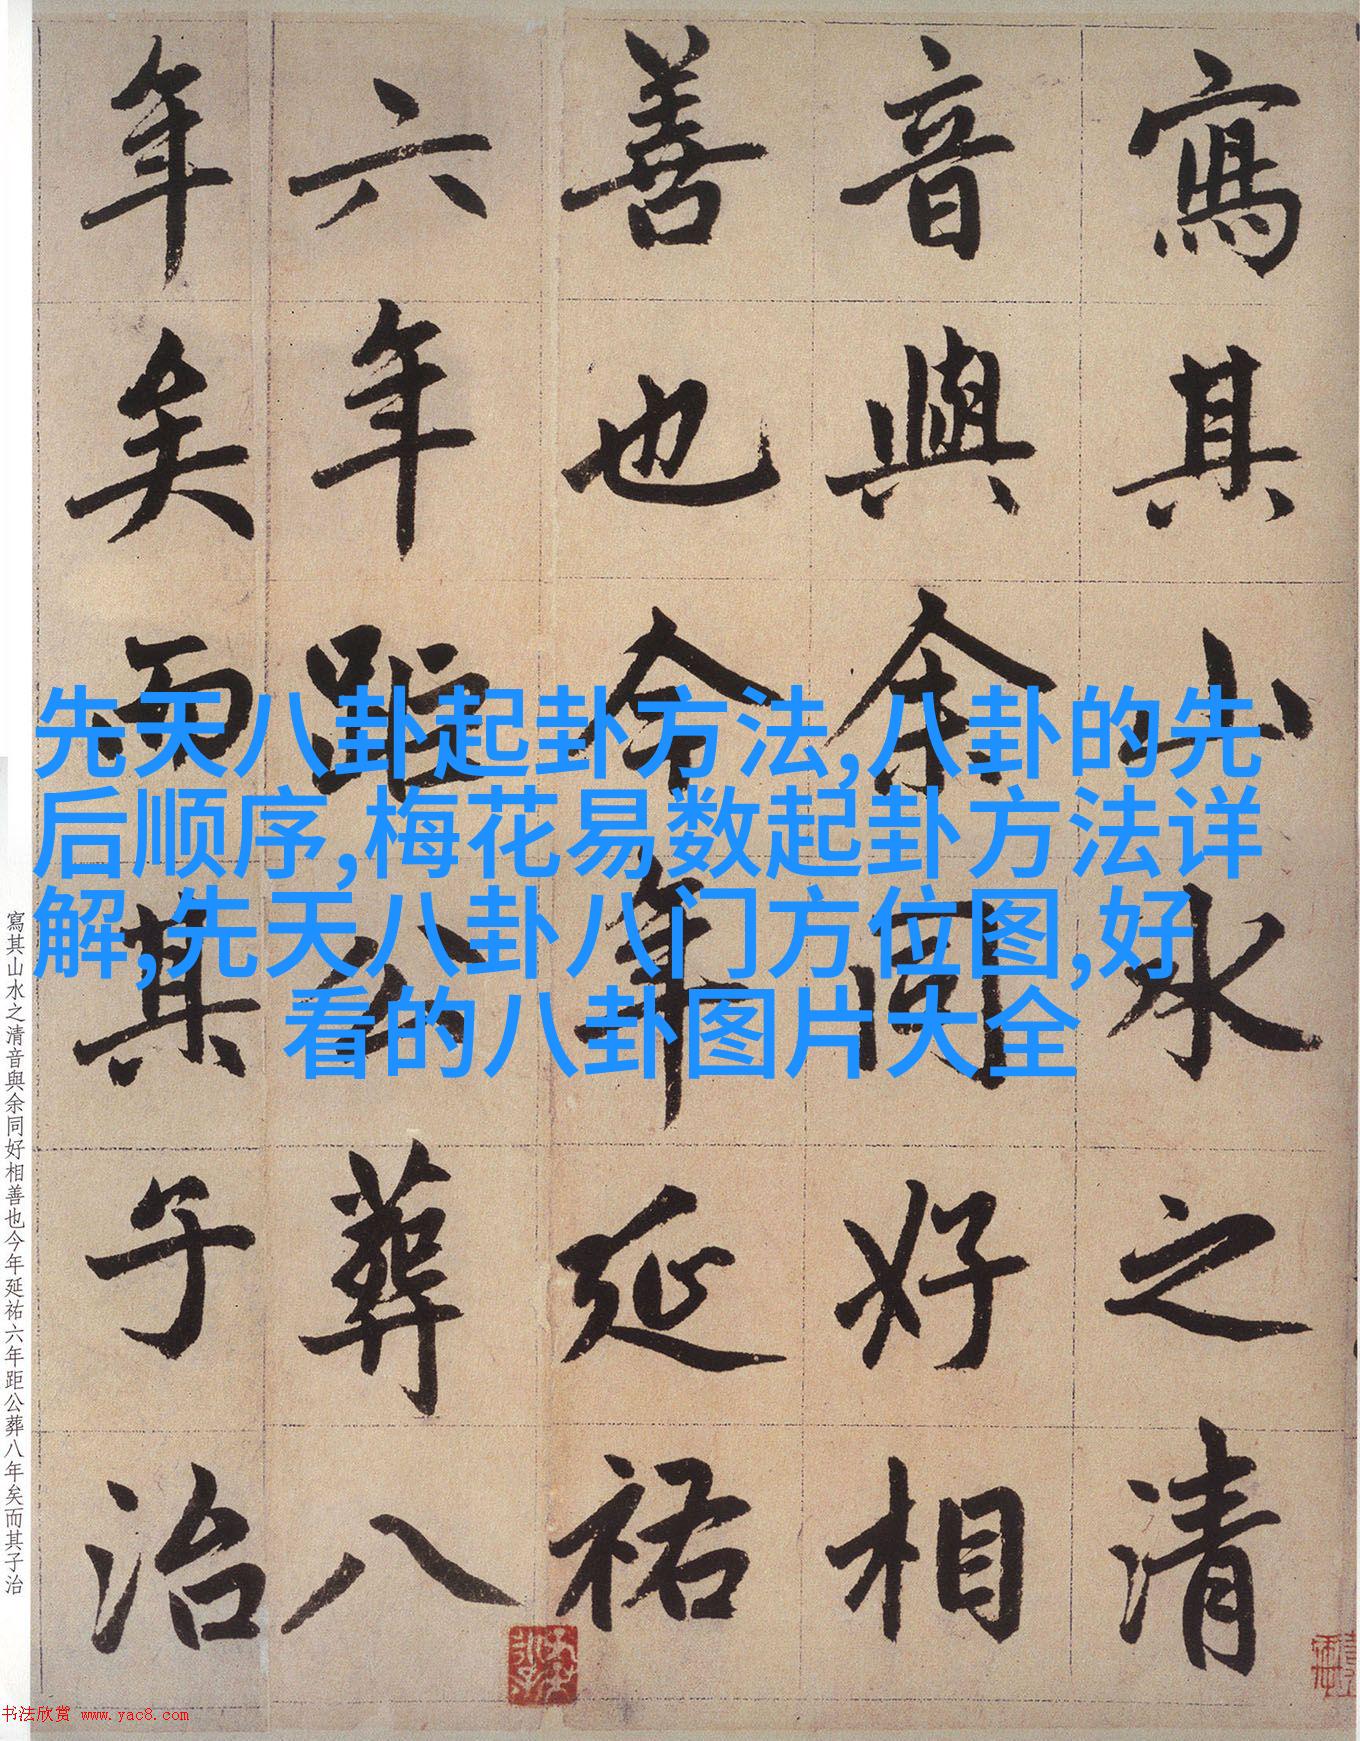 寫其山水之清
音與余同好相
善也今年延祐
六年距公葬八
年矣而其子治
先天八卦起卦方法,八卦的先
后顺序,梅花易数起卦方法详
解,先天八卦八门方位图,好
看的八卦图片大全
寫其山水之清音與余同好相善也今年延祐六年距公葬八年矣而其子治
书法欣赏 www.yac8.com